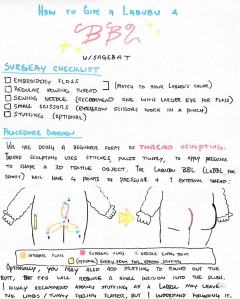 HOW TO GIVE A LABUBU A
BBL
U/SAGEBAT
SURGERY CHECKLIST
EMBROIDERY FLOSS
REGULAR SEWING THREAD
(MATCH TO YOUR LABUBU'S COLOR)
SEWING NEEDLE (RECOMMEND ONE WITH LARGER EYE FOR FLOSS)
SMALL SCISSORS (EYEBROW SCISSORS WORK IN A PINCH)
STUFFING (OPTIONAL)
PROCEDURE OVERVIEW
WE ARE DOING A BEGINNER FORM OF THREAD SCULPTING.
THREAD SCULPTING USES STITCHES PULLED TIGHTLY, TO APPLY PRESSURE
TO SHAPE A 3D TEXTILE OBJECT. THE LABUBU BBL (LABBL FOR
SHORT) WILL HAVE 4 POINTS OF PRESSURE + 1 EXTERNAL THREAD:
INTERNAL FLOSS
EXTERNAL FLOSS
NEEDLE ENTRY POINT
(OPTIONAL)
OPTIONALLY, YOU MAY ALSO ADD STUFFING TO ROUND OUT THE
BUTT, BUT THIS WILL REQUIRE A SMALL INCISION INTO THE PLUSH.
I HIGHLY RECOMMEND ADDING STUFFING AS A LABBL MAY LEAVE
THE LIMBS/TUMMY FEELING FLATTER, BUT I UNDERSTAND FOREGOING IT.